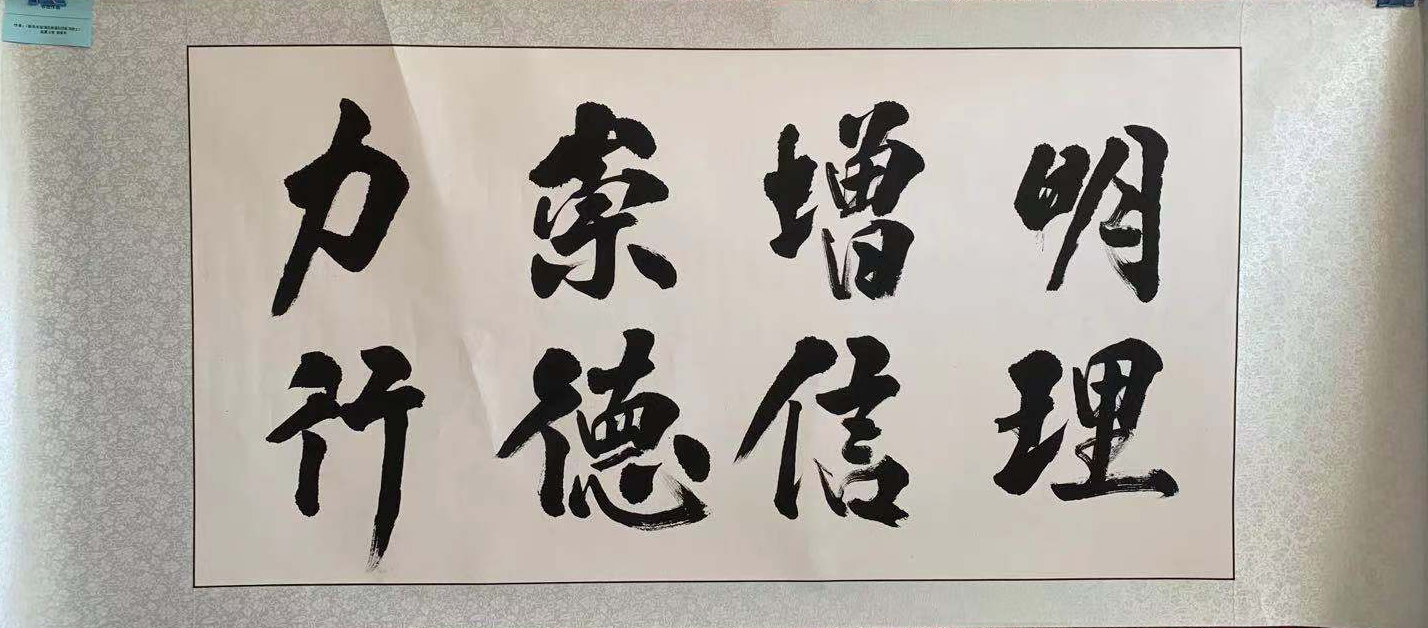 明理
增信
崇德
力行